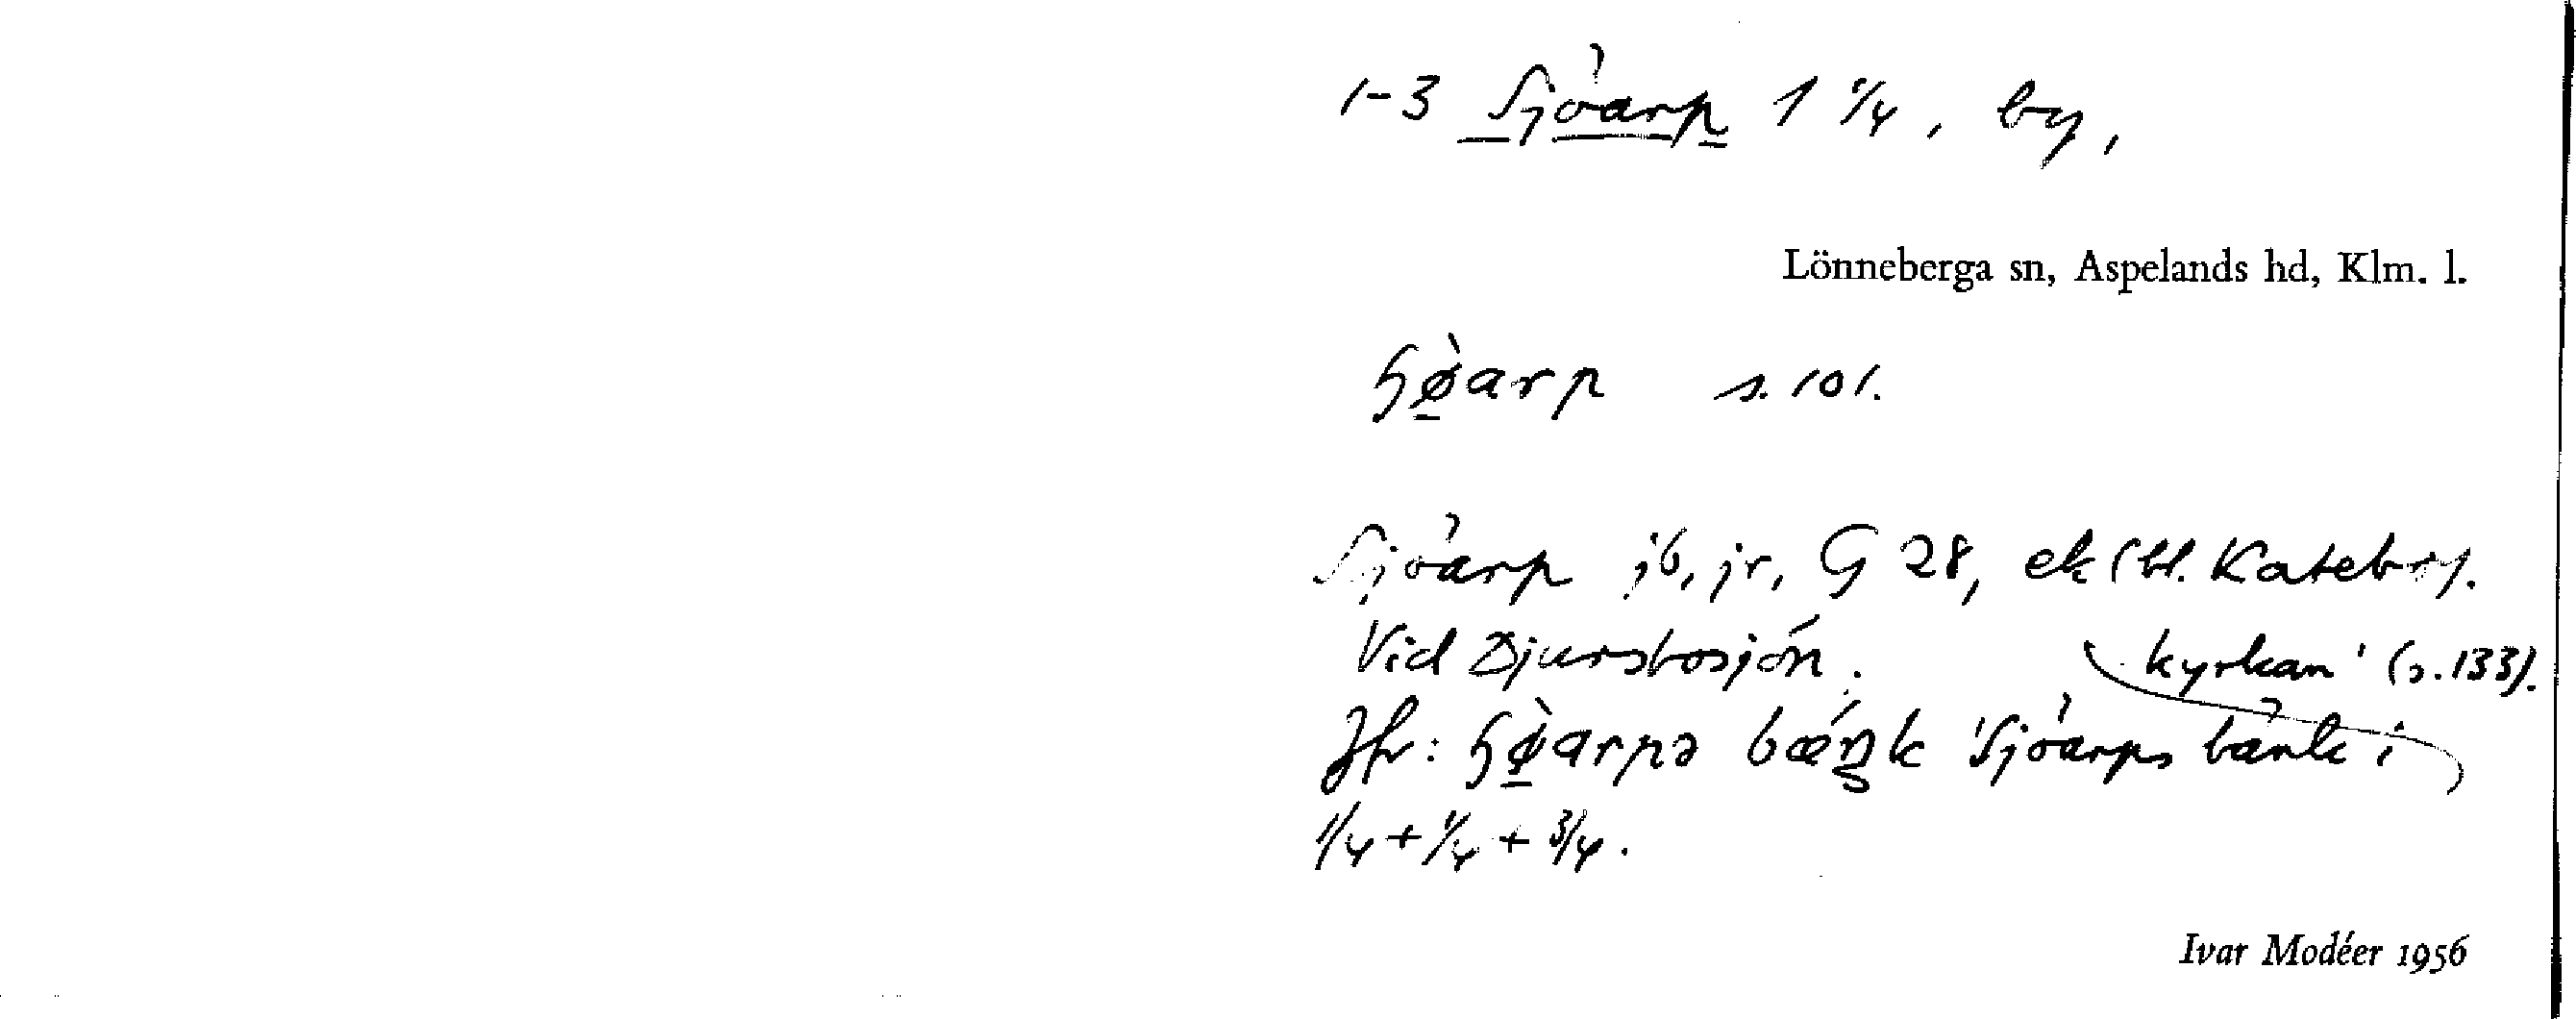 1-3 Sjöarp 1 1/4, by,
Lönneberga sn, Aspelands hd, Klm. l.
ɧø̠̀arp s. 101.
Sjöarp jb, jr, G 28, ek (bl. Katebo).
Vid Djursbosjön.
Jfr: ɧø̠̀arpə bǽŋk 'Sjöarps bänk i
kyrkan' (s. 133).
1/4 + 1/4 + 3/4.
Ivar Modéer 1956